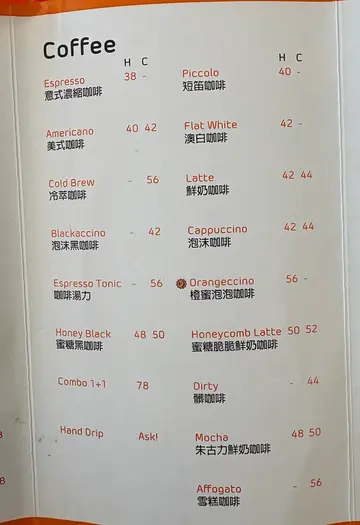 Coffee
H C
Espresso 38 -
意式濃縮咖啡
Americano 40 42
美式咖啡
Cold Brew - 56
冷萃咖啡
Blackaccino - 42
泡沫黑咖啡
Espresso Tonic - 56
咖啡湯力
Honey Black 48 50
蜜糖黑咖啡
Combo 1+1 78
Hand Drip Ask!
H C
Piccolo 40 -
短笛咖啡
Flat White 42 -
澳白咖啡
Latte 42 44
鮮奶咖啡
Cappuccino 42 44
泡沫咖啡
Orangeccino 56 -
橙蜜泡泡咖啡
Honeycomb Latte 50 52
蜜糖脆脆鮮奶咖啡
Dirty - 44
髒咖啡
Mocha 48 50
朱古力鮮奶咖啡
Affogato - 56
雪糕咖啡
8